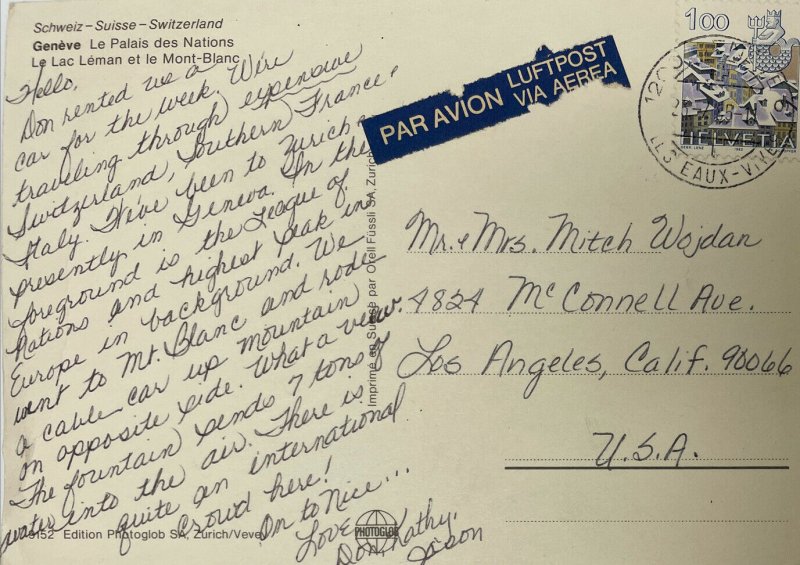 Schweiz – Suisse – Switzerland
Genève Le Palais des Nations
Le Lac Léman et le Mont-Blanc
Hello,
Don rented us a
car for the week. We're
traveling through expensive
Switzerland, Southern France &
Italy. We've been to Zurich &
presently in Geneva. In the
foreground is the League of
Nations and highest peak in
Europe in background. We
went to Mt. Blanc and rode
a cable car up mountain
on opposite side. What a view.
The fountain sends 7 tons of
water into the air. There is
quite an international
crowd here!
On to Nice...
Love
Don, Kathy,
Jason
9152 Edition Photoglob SA, Zürich/Vevey
PHOTOGLOB
Imprimé en Suisse par Orell Füssli SA, Zurich
PAR AVION LUFTPOST
VIA AEREA
100
HELVETIA
1207
LES EAUX-VIVES
Mr. & Mrs. Mitch Wojdan
4824 McConnell Ave.
Los Angeles, Calif. 90066
U.S.A.